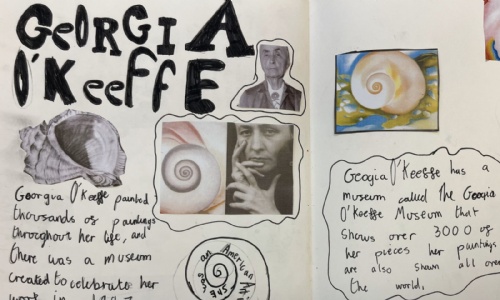 GeORGIA
O'KeeffE
Georgia O'Keeffe painted
thousands of paintings
throughout her life, and
there was a museum
created to celebrate her
work in 1997
an American Art
Georgia O'Keeffe has a
museum called The Georgia
O'Keeffe Museum that
shows over 3000 of
her pieces her paintings
are also shown all over
the world.